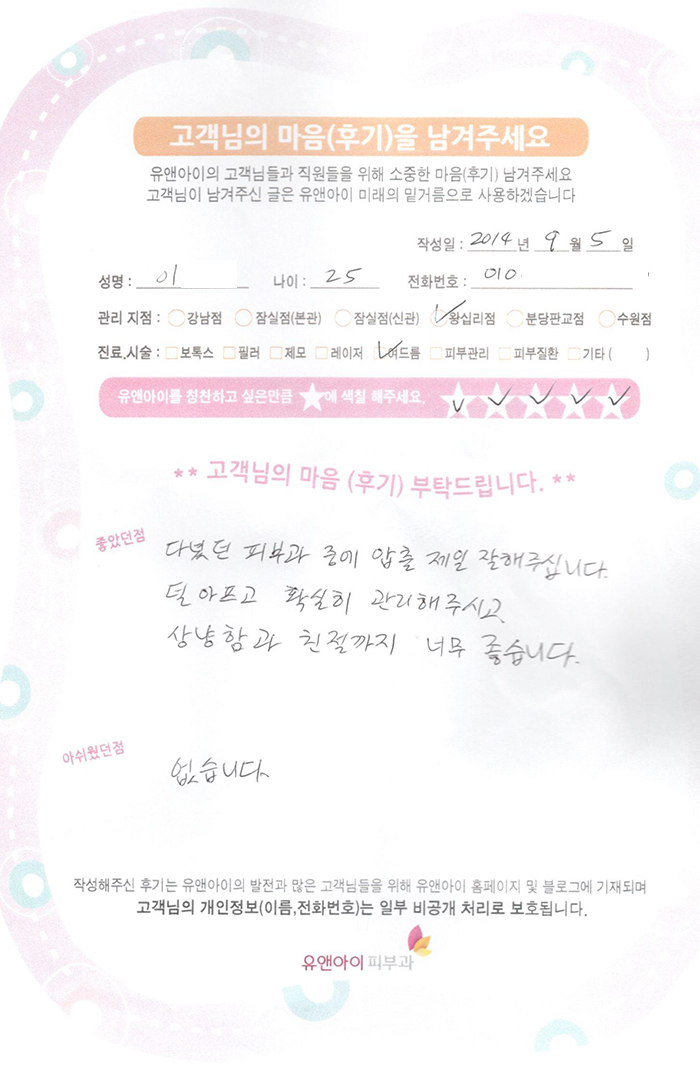 고객님의 마음(후기)을 남겨주세요
유앤아이의 고객님들과 직원들을 위해 소중한 마음(후기) 남겨주세요
고객님이 남겨주신 글은 유앤아이 미래의 밑거름으로 사용하겠습니다
작성일 : 2014 년 9 월 5 일
성명 : 이 나이 : 25 전화번호 : 010
관리 지점 : 강남점 잠실점(본관) 잠실점(신관) 왕십리점 분당판교점 수원점
진료.시술 : 보톡스 필러 제모 레이저 여드름 피부관리 피부질환 기타 ( )
유앤아이를 칭찬하고 싶은만큼 ★에 색칠 해주세요.
** 고객님의 마음 (후기) 부탁드립니다. **
좋았던점
다녔던 피부과 중에 압출 제일 잘해주십니다.
덜 아프고 확실히 관리해주시고
상냥함과 친절까지 너무 좋습니다.
아쉬웠던점
없습니다.
작성해주신 후기는 유앤아이의 발전과 많은 고객님들을 위해 유앤아이 홈페이지 및 블로그에 기재되며
고객님의 개인정보(이름,전화번호)는 일부 비공개 처리로 보호됩니다.
유앤아이피부과